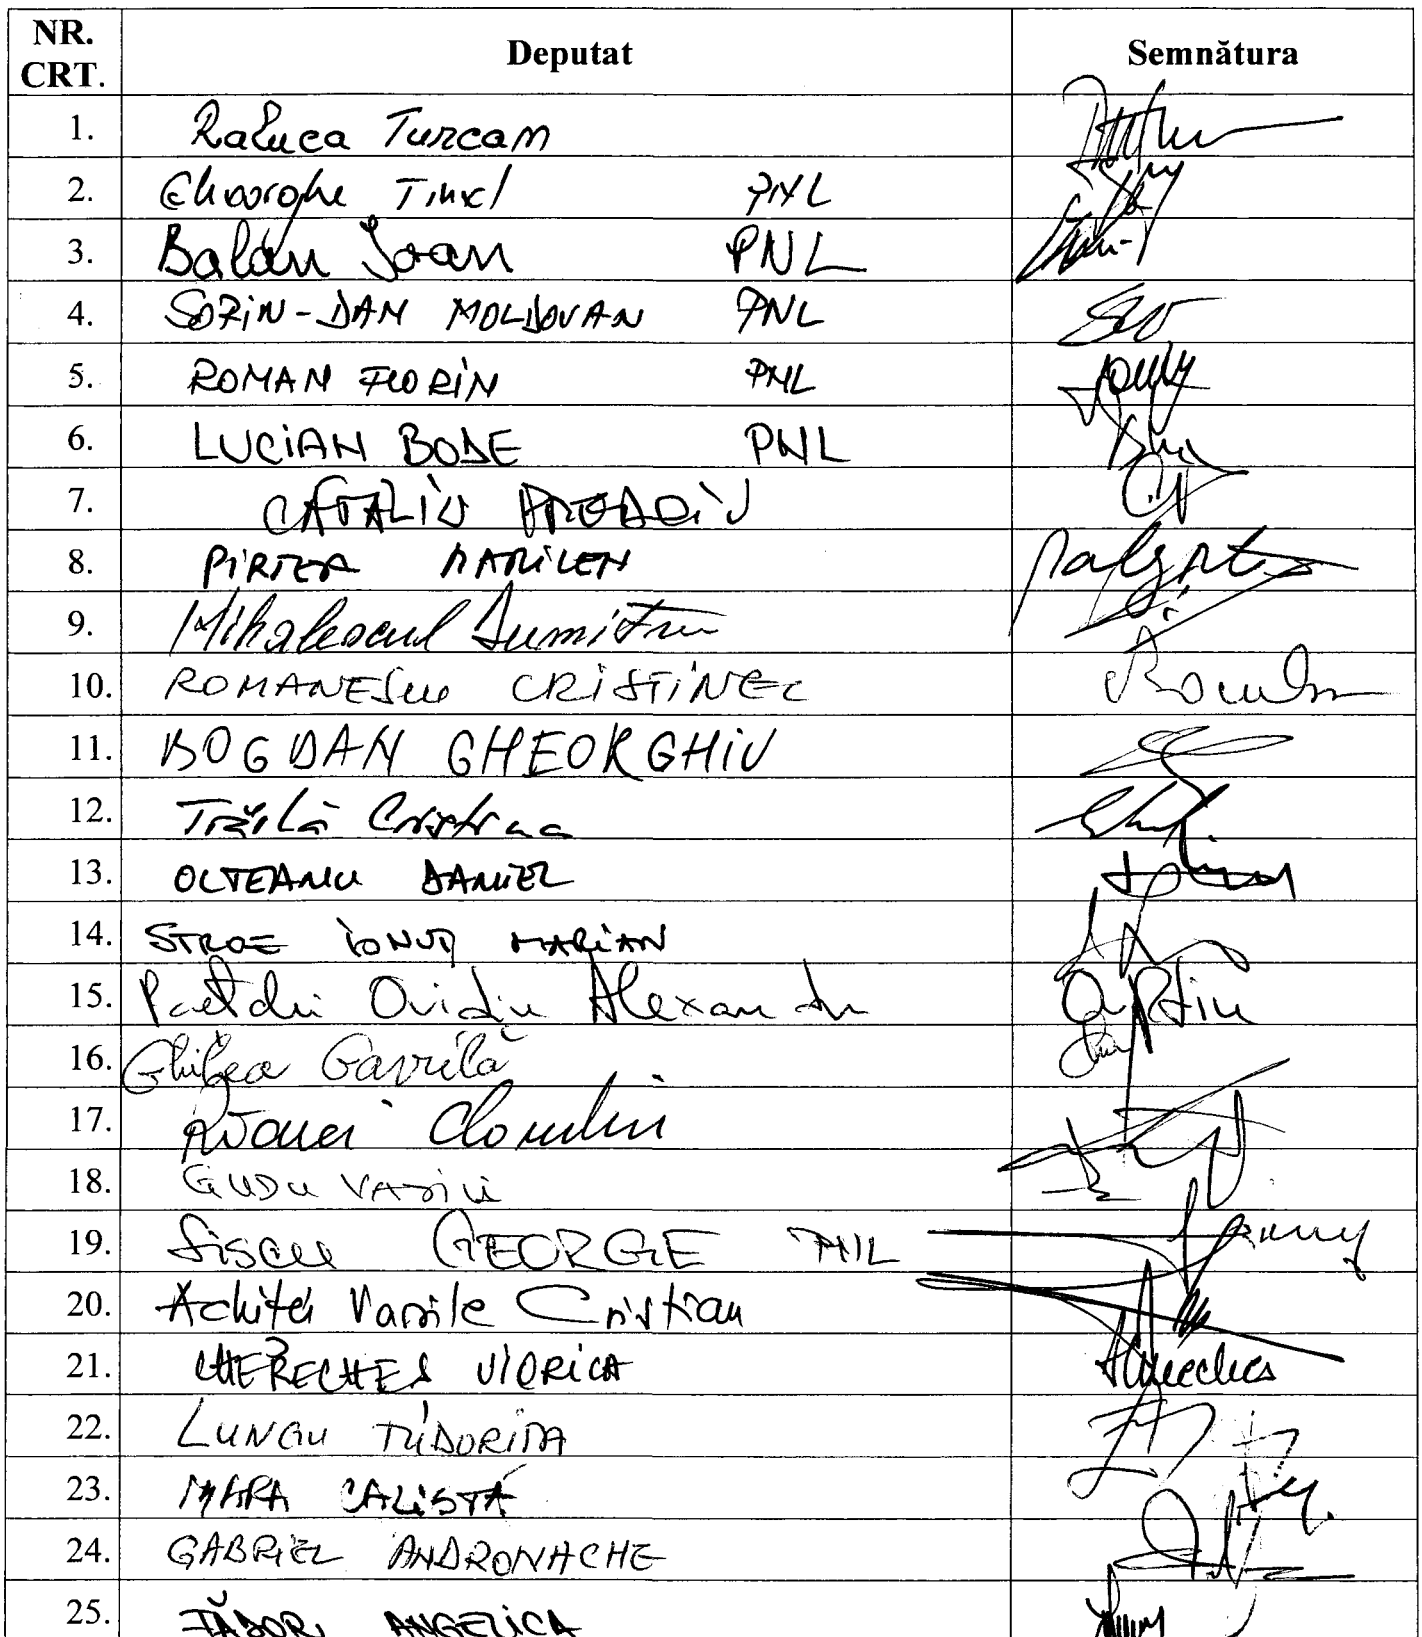 NR. CRT. Deputat Semnătura
1. Raluca Turcan
2. Gheorghe Tinel PNL
3. Balan Ioan PNL
4. SORIN-DAN MOLDOVAN PNL
5. ROMAN FLORIN PNL
6. LUCIAN BODE PNL
7. CATALIN PREDOIU
8. PIRTEA MARILEN
9. Mihalescul Dumitru
10. ROMANESCU CRISTINEL
11. BOGDAN GHEORGHIU
12. Trăilă Cristina
13. OLTEANU DANIEL
14. STROE IONUȚ MARIAN
15. Ovidiu Alexandru
16. Ghilea Gavrilă
17. Claudiu
18. GUDU VASILE
19. Șișcu GEORGE PNL
20. Achiței Vasile Cristian
21. CHERECHEȘ VIORICA
22. LUNGU TUDORIȚA
23. MARA CALISTA
24. GABRIEL ANDRONACHE
25. FĂDOR ANGELICA